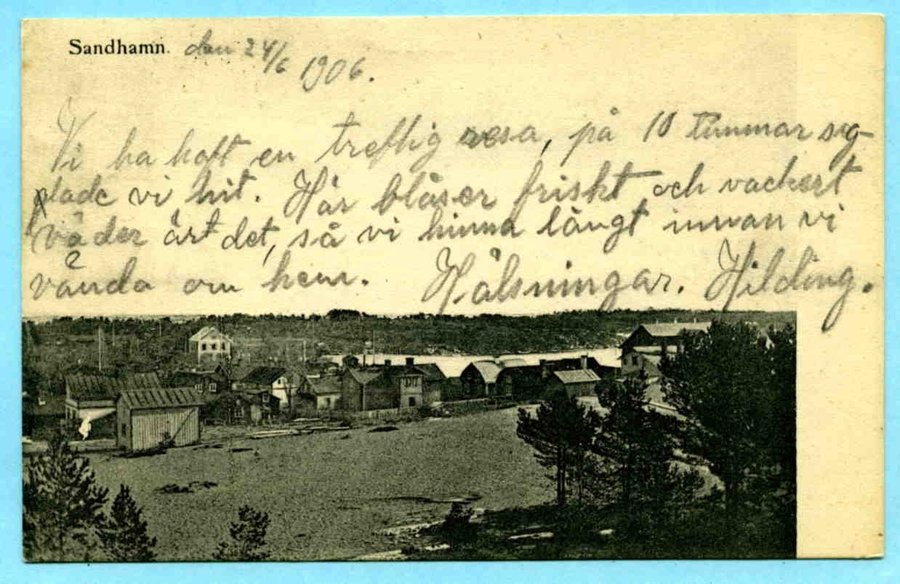 Sandhamn. den 24/6 1906.
Vi ha haft en treflig resa, på 10 timmar seg-
lade vi hit. Här blåser friskt och vackert
väder är det, så vi hinna långt innan vi
vända om hem. Hälsningar. Hilding.